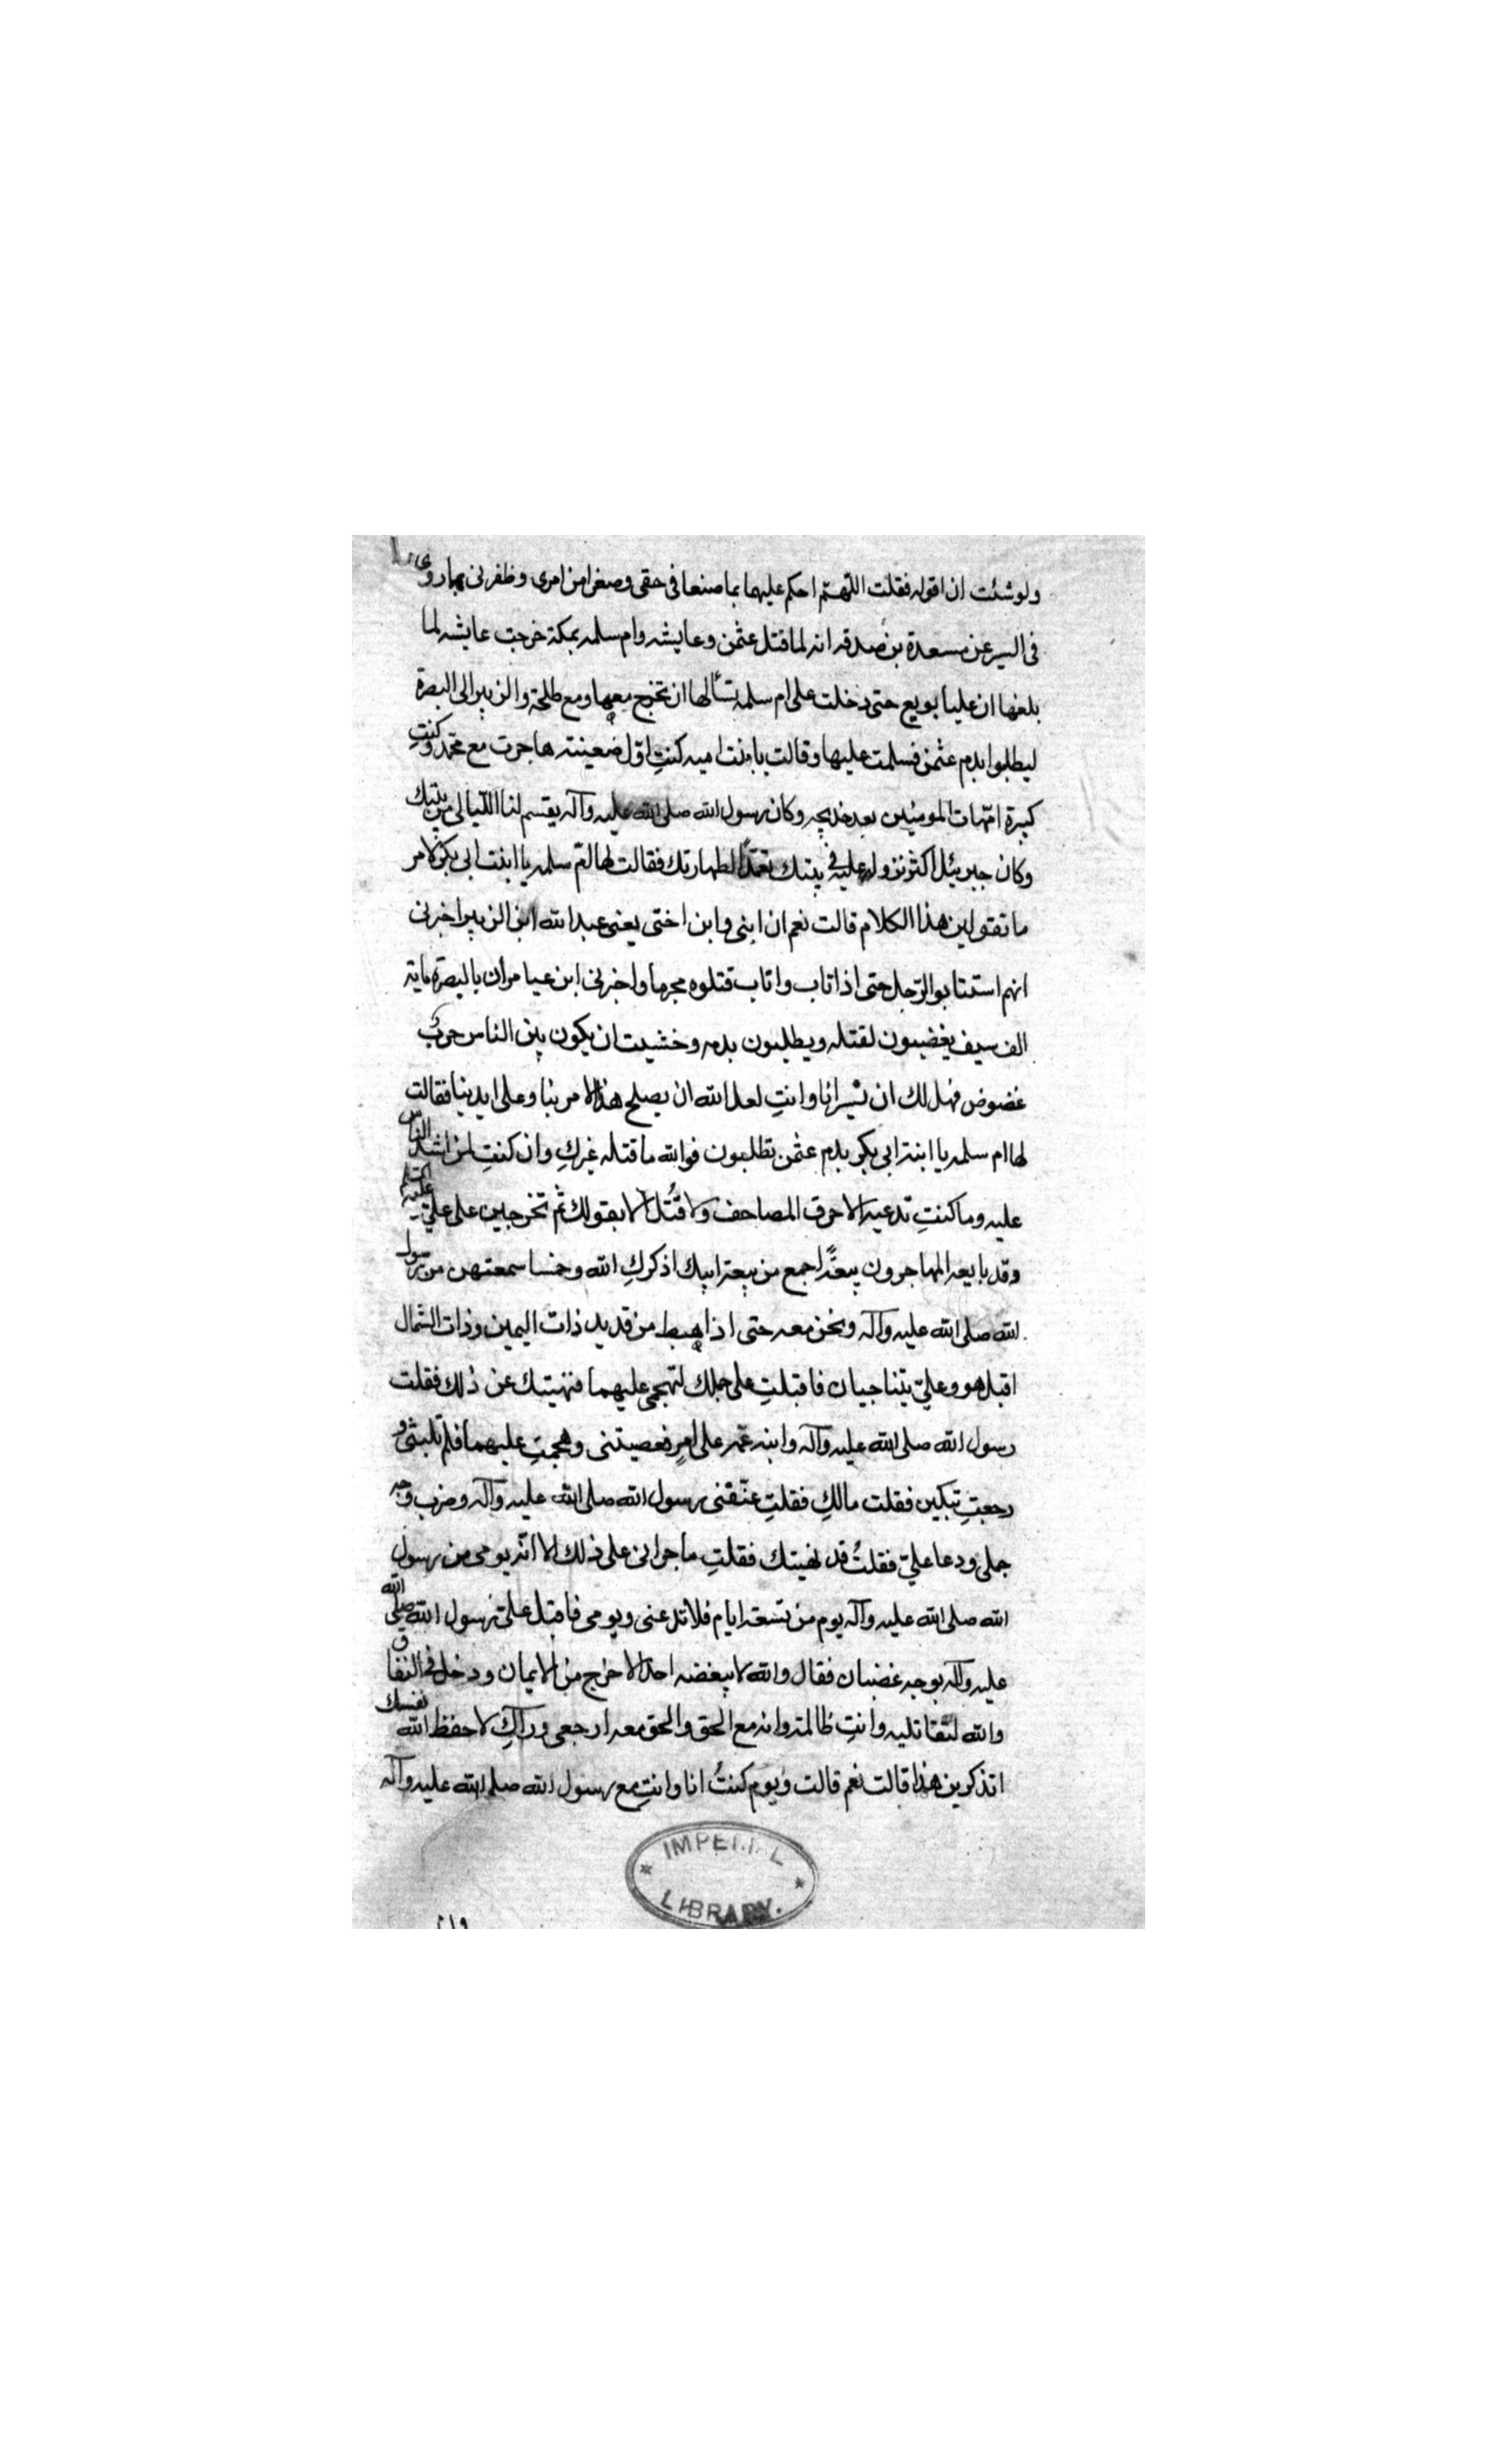 ولوشئت ان اقوله فقلت اللهم احكم عليهما بما صنعا فى حقى وصغرا من امرى وظفرنى بهما روى
فى السير عن مسعدة بن صدقه انه لما قتل عثمن وعايشه وام سلمه بمكة خرجت عايشه لما
بلغها ان عليا بويع حتى دخلت على ام سلمه تسألها ان تخرج معها ومع طلحة والزبير الى البصرة
ليطلبوا بدم عثمن فسلمت عليها وقالت يا بنت اميه كنتِ اول ضعينته هاجرت مع محمد وكنتِ
كبيرة امهات المومنين بعد خديجه وكان رسول الله صلى الله عليه وآله يقسم لنا الليالى من بيتك
وكان جبرئيل اكثر نزوله عليه فى بيتك تعمدًا لطهارتك فقالت لها ام سلمه يا ابنت ابى بكر لامر
ما تقولين هذا الكلام قالت نعم ان ابنى وابن اختى يعنى عبد الله ابن الزبير اخبرنى
انهم استتابوا الرجل حتى اذا تاب واتاب قتلوه مجرما واخبرنى ابن عامر ان بالبصرة ماية
الف سيف يغضبون لقتله ويطلبون بدمه وخشيت ان يكون بين الناس حرب
غضوض فهل لك ان نسير انا وانتِ لعل الله ان يصلح هذا الامر بنا وعلى ايدينا فقالت
لها ام سلمه يا ابنة ابى بكر بدم عثمن تطلبون فوالله ما قتله غيركِ وان كنتِ لمن اشد الناس
عليه وما كنتِ تدعيه الا حرق المصاحف ولا قُتل الا بقولك ثم تخرجين على على عليه
وقد بايعه المهاجرون بيعةً اجمع من بيعة ابيك اذكركِ الله وخمسا سمعتهن من رسول
الله صلى الله عليه وآله ونحن معه حتى اذا هبط من قديد ذات اليمين وذات الشمال
اقبل هو وعلىّ يتناجيان فاقبلتِ على جملك لتهجمى عليهما فنهيتك عن ذلك فقلت
رسول الله صلى الله عليه وآله وابنه عمّه على امرٍ فعصيتنى وهجمتِ عليهما فلم تلبثى و
رجعتِ تبكين فقلت مالكِ فقلتِ عنّفنى رسول الله صلى الله عليه وآله وضرب وجه
جملى ودعا علىّ فقلتُ قد نهيتك فقلتِ ما جرانى على ذلك الا انه يومى من رسول
الله صلى الله عليه وآله يوم من تسعة ايام فلا تدعنى ويومى فاقبل علىّ رسول الله صلى الله
عليه وآله بوجه غضبان فقال والله لا يبغضه احد الا خرج من الايمان ودخل فى النفاق
والله لتقاتليه وانتِ ظالمة وانه مع الحق والحق معه ارجعى وراكِ لا حفظ الله نفسك
اتذكرين هذا قالت نعم قالت ويوم كنتُ انا وانتِ مع رسول الله صلى الله عليه وآله
IMPERIAL
LIBRARY.